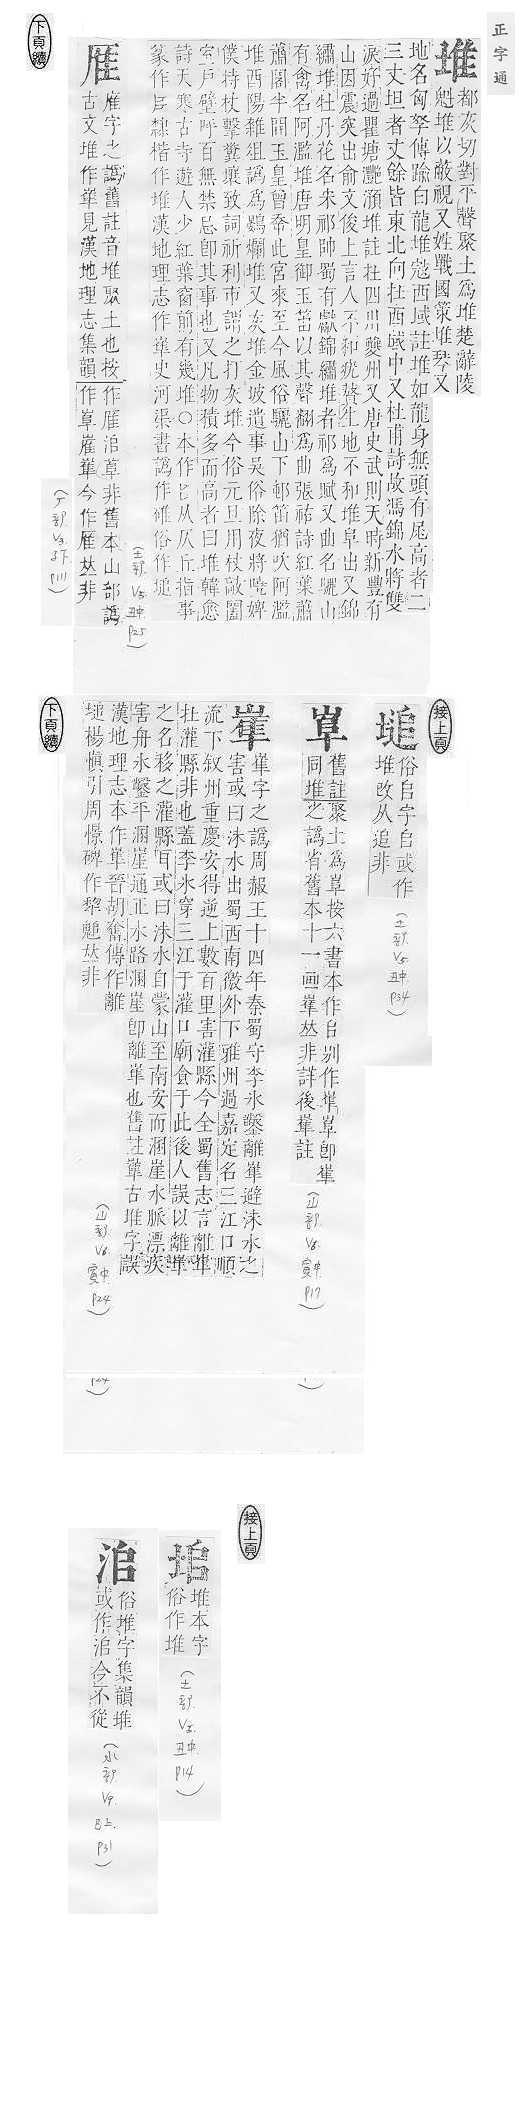 正字通
堆
都灰切對平聲聚土為堆楚辭陵
魁堆以蔽視又姓戰國策堆琴又
地名匈奴傳踰白龍堆寇西域註堆如龍身無頭有尾高者二
三丈坦者丈餘皆東北向在西域中又杜甫詩故馮錦水將雙
淚好過瞿塘灩澦堆註在四川夔州又唐史武則天時新豐有
山因震突出俞文俊上言人不和疣贅生地不和堆阜出又錦
繡堆牡丹花名宋祁帥蜀有獻錦繡堆者祁為賦又曲名驪山
有禽名阿濫堆唐明皇御玉笛以其聲翻為曲張祐詩紅葉蕭
蕭閣半開玉皇曾幸此宮來至今風俗驪山下邨笛猶吹阿濫
堆酉陽雜俎譌為鷃爛堆又灰堆金坡遺事吳俗除夜將曉婢
僕持杖擊糞壤致詞祈利市謂之打灰堆今俗元旦用杖敲闔
室戶壁呼百無禁忌卽其事也又凡物積多而高者曰堆韓愈
詩天寒古寺遊人少紅葉窗前有幾堆○本作𠂤从仄丘指事
篆作𠂤隸楷作堆漢地理志作崋史河渠書譌作碓俗作塠
(土部 V5. 丑中. P25)
雁
雁字之譌舊註音堆聚土也按作雁洎𡸁非舊本山部譌
古文堆作崋見漢地理志集韻作𡸁崔崋今作雁𠀤非
(厂部 V3. 子下 P111)
下頁續
接上頁
塠
俗𠂤字𠂤或作
堆改从追非
(土部. V5. 丑中. P34)
𡸁
舊註聚土為𡸁按六書本作𠂤別作崋𡸁卽崋
同堆之譌省舊本十一画崋𠀤非詳後崋註
(山部. V6. 寅中. P17)
崋
崋字之譌周赧王十四年秦蜀守李冰鑿離崋避沬水之
害或曰沬水出蜀西南徼外下雅州過嘉定名三江口順
流下叙州重慶安得逆上數百里害灌縣今全蜀舊志言離崋
在灌縣非也蓋李冰穿三江于灌口廟食于此後人誤以離崋
之名移之灌縣耳或曰沬水自蒙山至南安而溷崖水脈漂疾
害舟冰鑿平溷崖通正水路溷崖卽離崋也舊註崋古堆字誤
漢地理志本作崋晉胡奮傳作離
塠楊愼引周憬碑作犂魋𠀤非
(山部. V6. 寅中. P24)
下頁續
接上頁
𡊠
堆本字
俗作堆
(土部. V5. 丑中. P14)
洎
俗堆字集韻堆
或作洎今不從
(水部. V9. 巳上. P31)